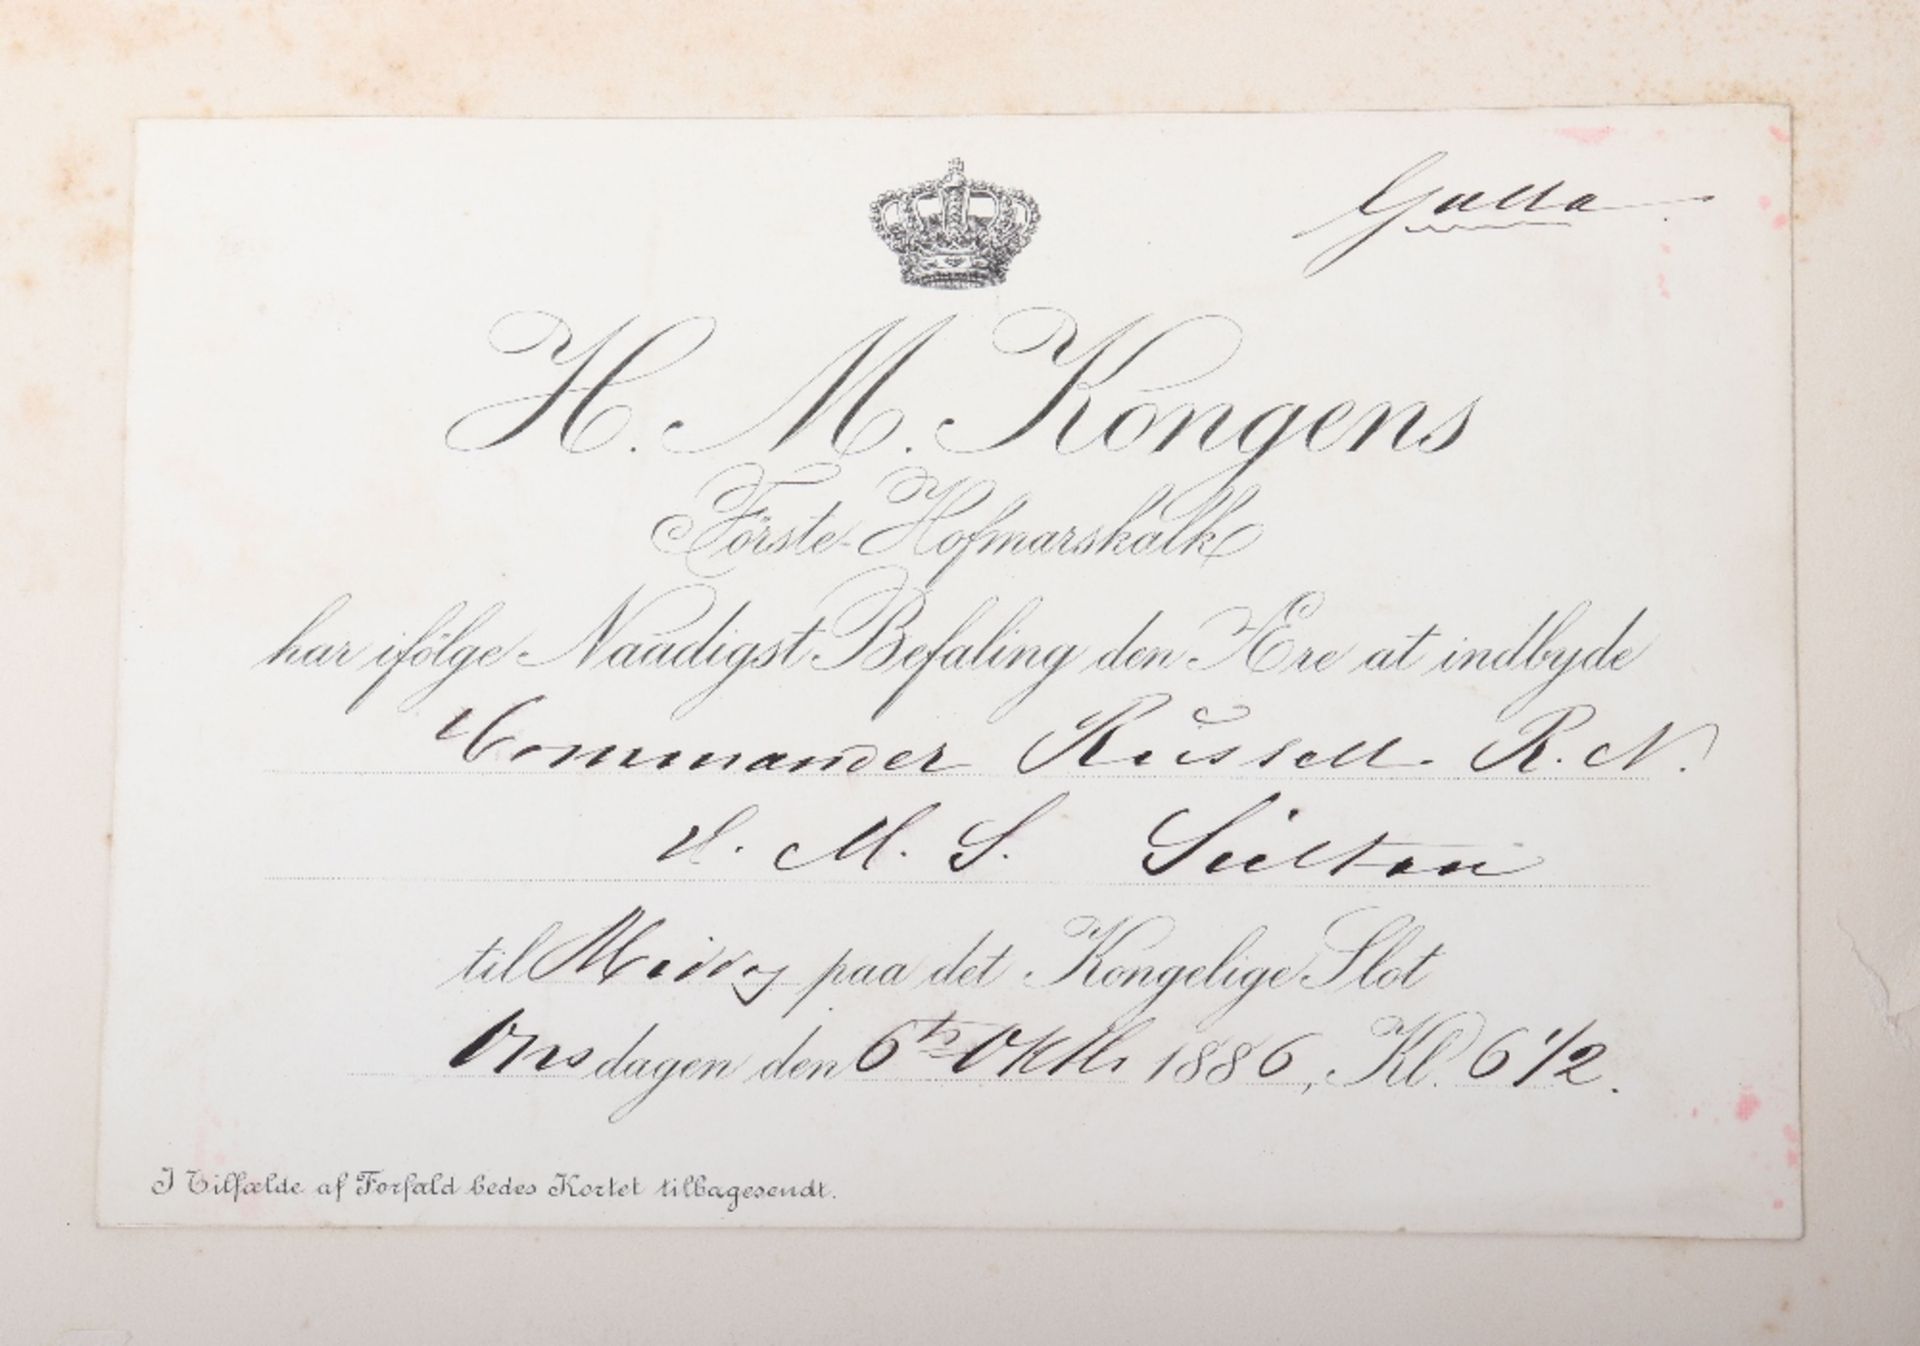 Galla
H. M. Kongens
Förste-Hofmarskalk
har ifölge Naadigst Befaling den Ære at indbyde
Commander Russell. R. N.
H. M. S. Sultan
til Middag paa det Kongelige Slot
Onsdagen den 6te Oktbr 1886, Kl. 6 1/2.
I Tilfælde af Forfald bedes Kortet tilbagesendt.